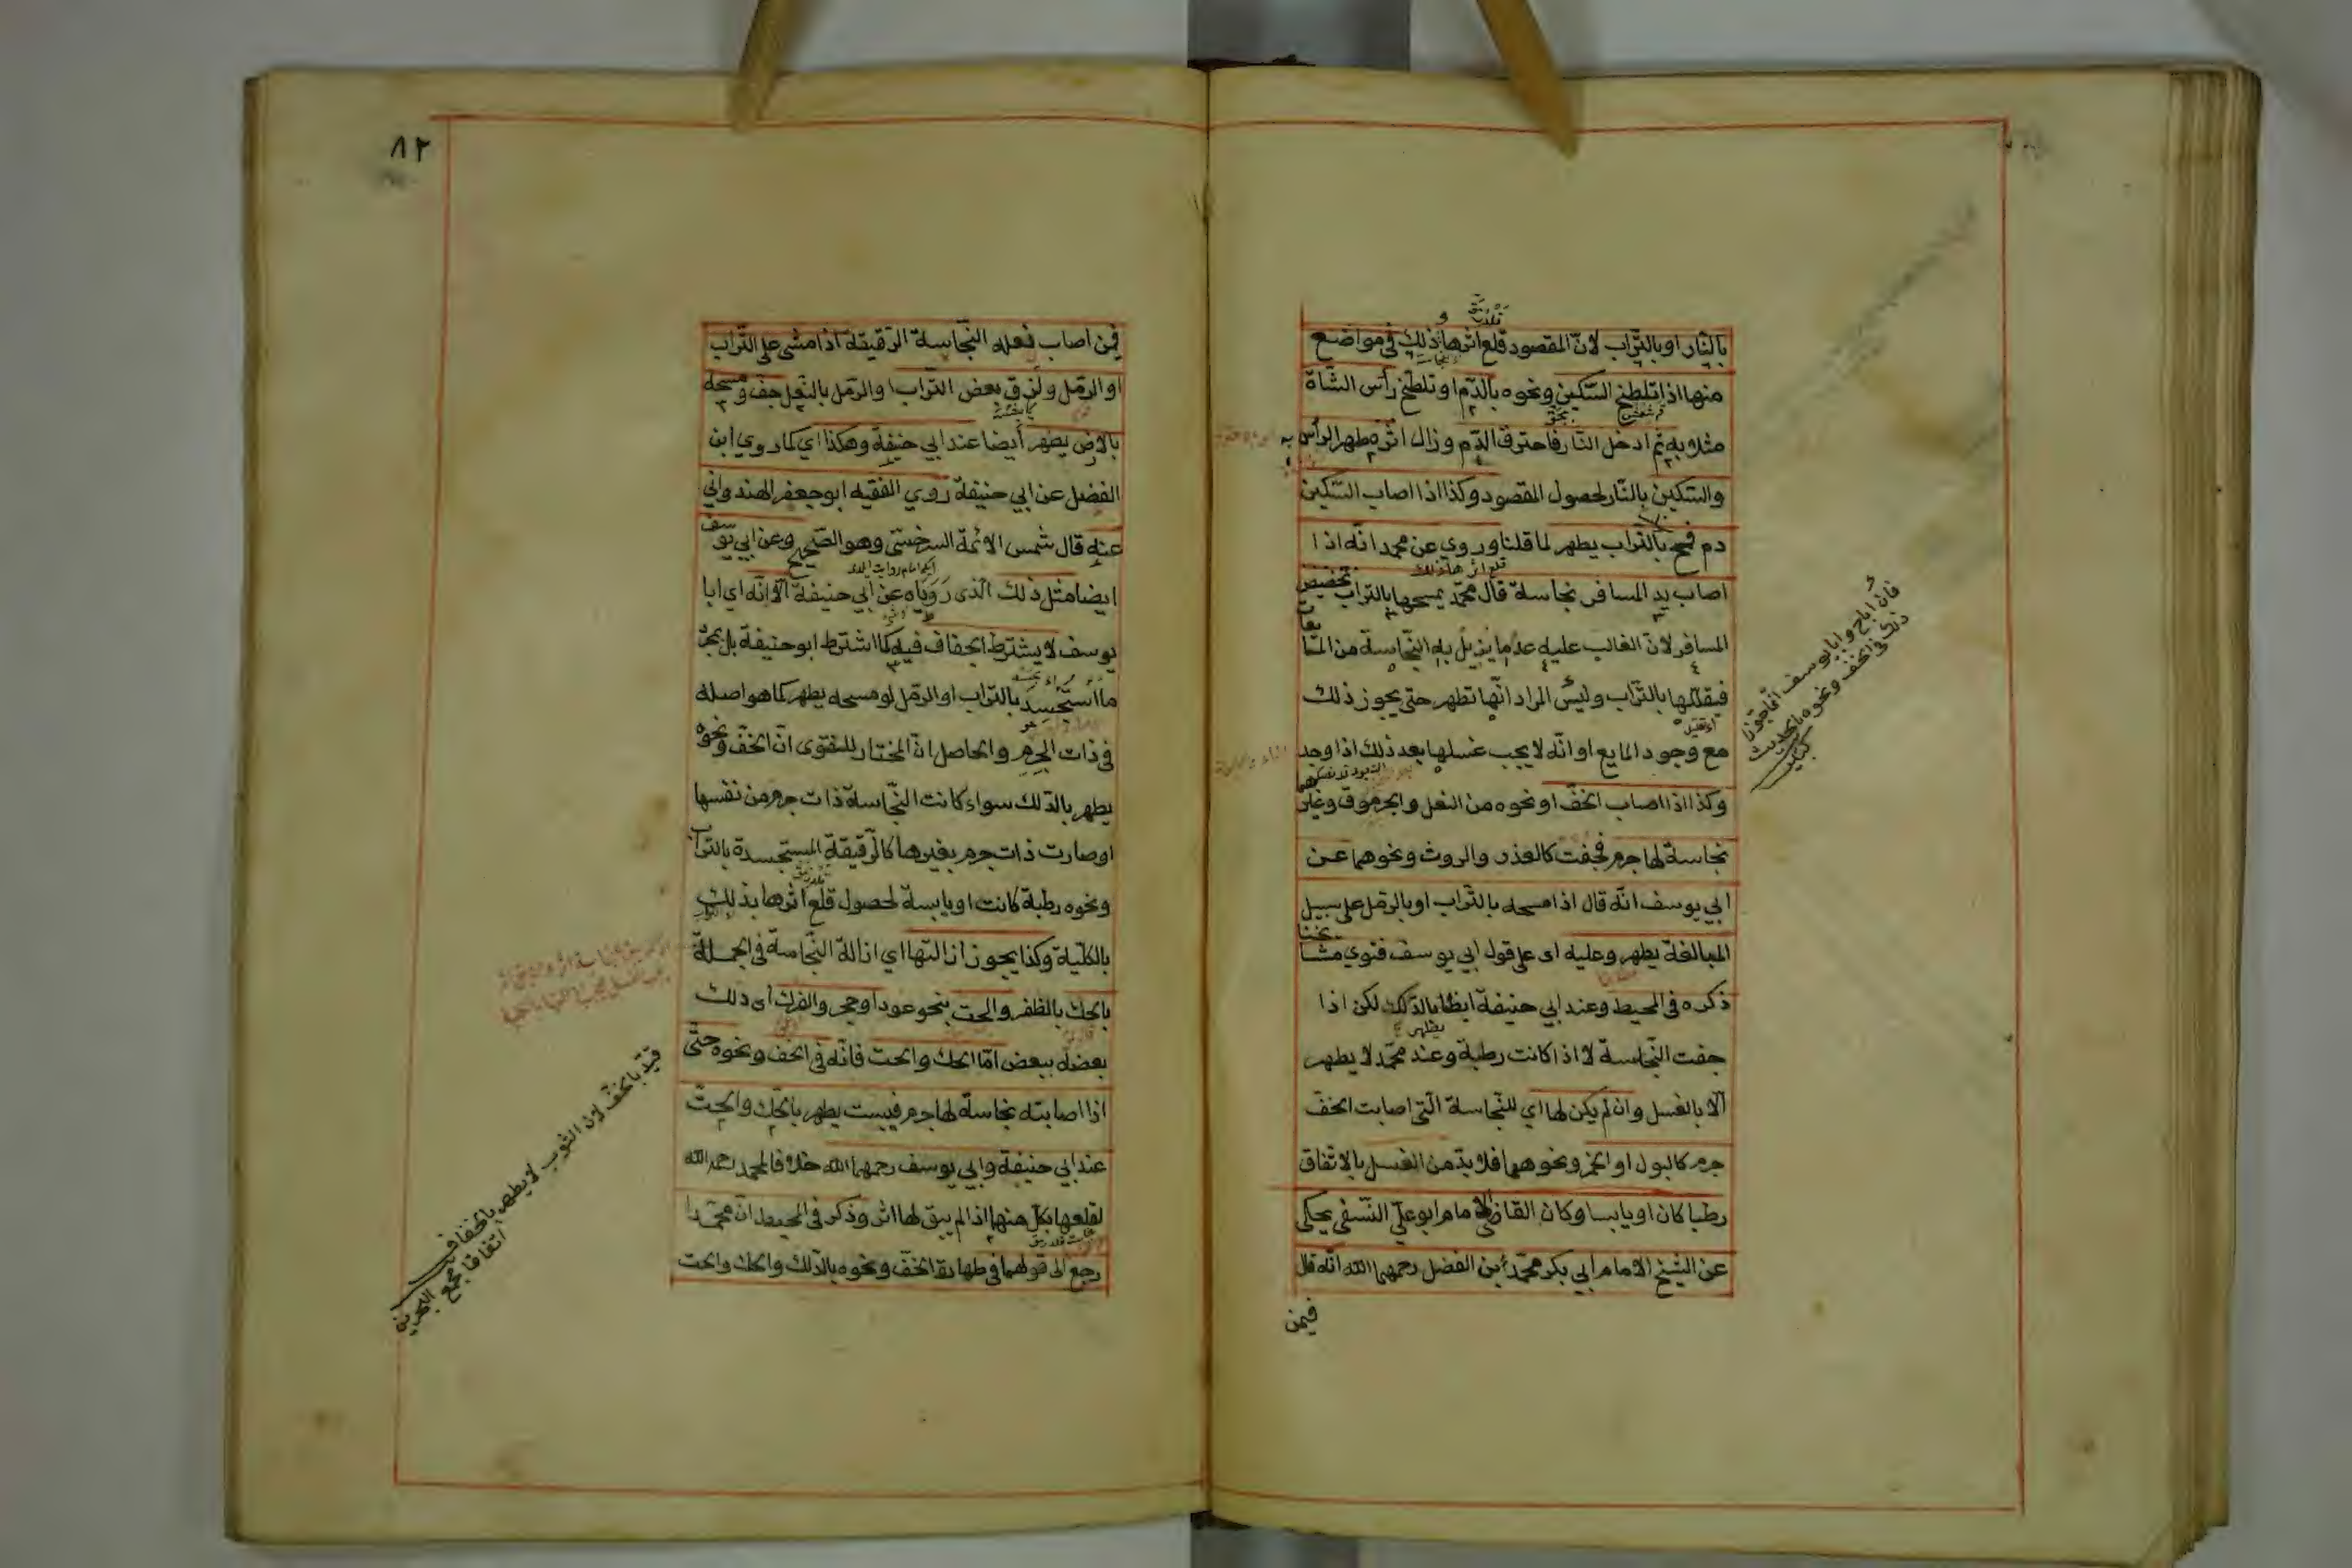 بالنار او بالتراب لان المقصود قلع اثرها ذلك في مواضع
منها اذا تلطخ السكين ونحوه بالدم او تلطخ رأس الشاة
مثلا به ثم ادخل النار فاحترق الدم وزال اثره طهر الرأس
والسكين بالنار لحصول المقصود وكذا اذا اصاب السكين
دم فمسح بالتراب يطهر لما قلنا وروي عن محمد انه اذا
اصاب يد المسافر نجاسة قال محمد يمسحها بالتراب تخصيص
المسافر لان الغالب عليه عدم ما يزيل به النجاسة من المايعات
فيقللها بالتراب وليس المراد انها تطهر حتى يجوز ذلك
مع وجود المايع او انه لا يجب غسلها بعد ذلك اذا وجد
وكذا اذا اصاب الخف او نحوه من النعل والجرموق وغيرهما
نجاسة لها جرم فجفت كالعذرة والروث ونحوهما عن
ابي يوسف انه قال اذا مسحه بالتراب او بالرمل على سبيل
المبالغة يطهر وعليه اى على قول ابي يوسف فتوي مشايخنا
ذكره في المحيط وعند ابي حنيفة ايضا بالدلك لكن اذا
جفت النجاسة لا اذا كانت رطبة وعند محمد لا يطهر
الا بالغسل وان لم يكن لها اي للنجاسة التي اصابت الخف
جرم كالبول او الخمر ونحوهما فلا بد من الغسل بالاتفاق
رطبا كان او يابسا وكان القاضي الامام ابو علي النسفي يحكي
عن الشيخ الامام ابي بكر محمد بن الفضل رحمهما الله انه قال
فيمن
فان اباح وابا يوسف انما جوز
ذلك في الخف ونحوه بالحديث
كبير
٨٢
فمن اصاب نعله النجاسة الرقيقة اذا مشى على التراب
او الرمل ولزق بعض التراب او الرمل بالنعل جف ومسحه
بالارض يطهر أيضا عند ابي حنيفة وهكذا اي كما روي ابن
الفضل عن ابي حنيفة روي الفقيه ابو جعفر الهندواني
عنه قال شمس الائمة السرخسي وهو الصحيح وعن ابي يوسف
ايضا مثل ذلك الذى رويناه عن ابي حنيفة الا انه اي ابا
يوسف لا يشترط الجفاف فيه كما اشترط ابو حنيفة بل بمجرد
ما استجسد بالتراب او الرمل لو مسحه يطهر كما هو اصله
في ذات الجرم والحاصل ان المختار للفتوى ان الخف ونحوه
يطهر بالدلك سواء كانت النجاسة ذات جرم من نفسها
او صارت ذات جرم بغيرها كالرقيقة المستجسدة بالتراب
ونحوه رطبة كانت او يابسة لحصول قلع اثرها بذلك
بالكلية وكذا يجوز ازالتها اي ازالة النجاسة في الجملة
بالحك بالظفر والحت بنحو عود او حجر والفرك أى دلك
بعضه ببعض امّا الحك والحت فانه في الخف ونحوه حتى
اذا اصابته نجاسة لها جرم فيبست يطهر بالحك والحت
عند ابي حنيفة وابي يوسف رحمهما الله خلافا لمحمد رحمه الله
لقلعها بكل منهما اذ لم يبق لها اثر وذكر في المحيط ان محمدا
رجع الى قولهما في طهارة الخف ونحوه بالدلك والحك والحت
قيد بالخف لان الثوب لا يطهر بالجفاف
اتفاقا مجمع البحرين